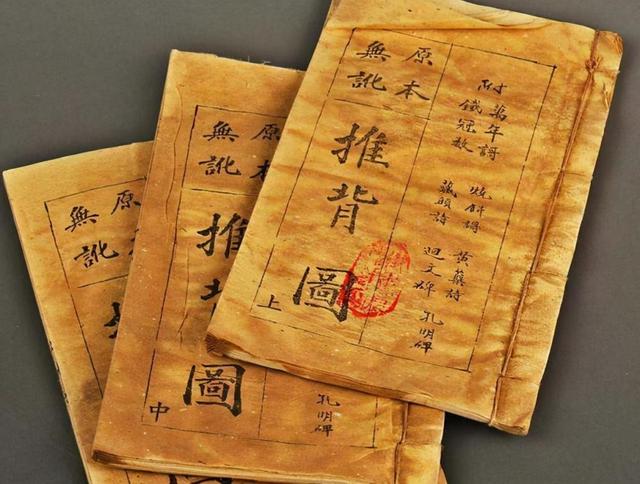 附
萬年謌 燒餅謌 黃蘗詩 孔明碑
鐵冠數 藏頭詩 迴文碑
原本
無訛
推背圖
上
原本
無訛
推背圖
中
孔明碑
原本
無訛